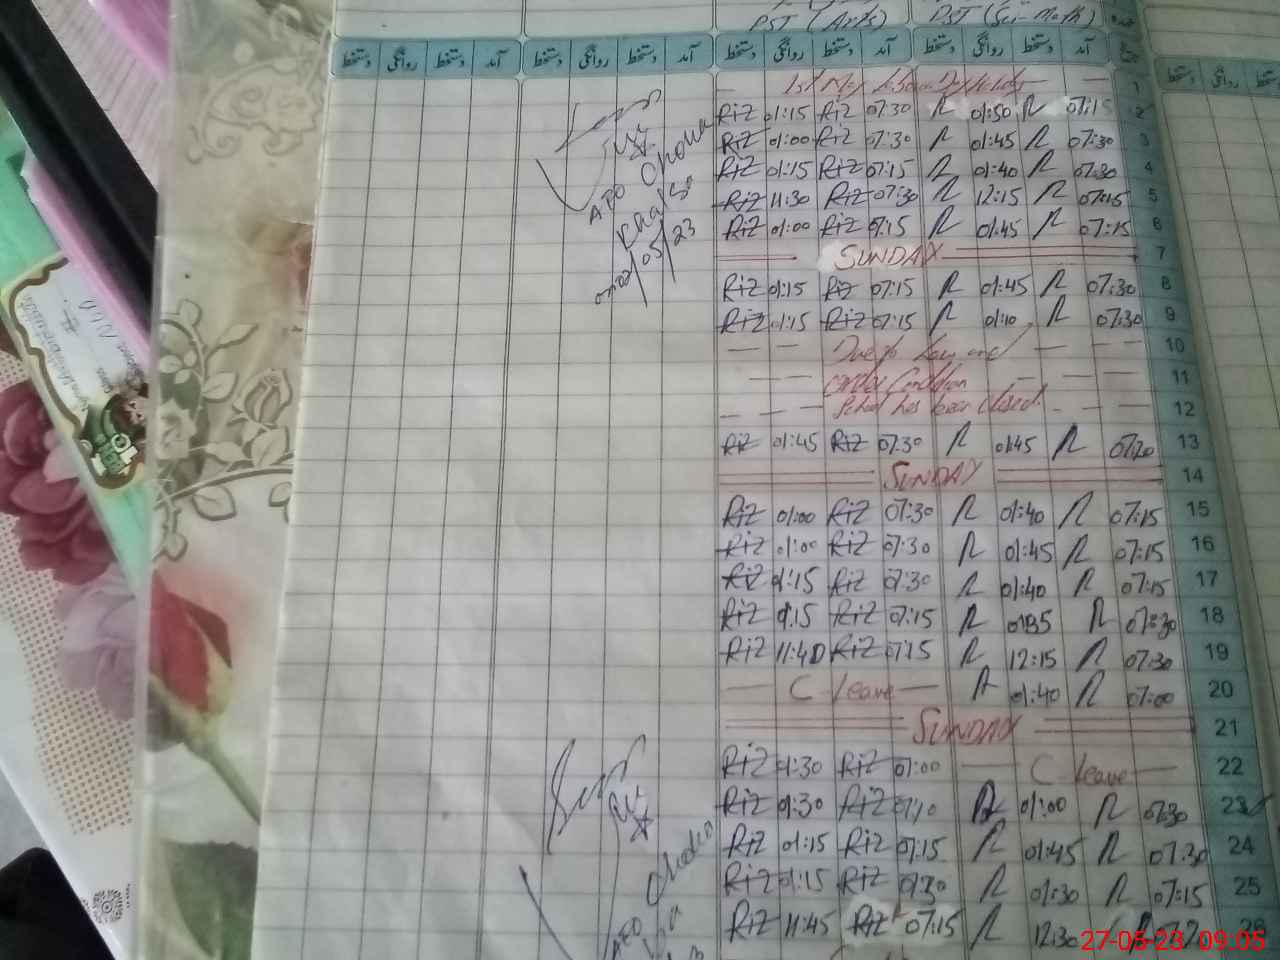 PST (Arts) PST (Sci-Math)
دستخط روانگی دستخط آمد دستخط روانگی دستخط آمد دستخط روانگی دستخط آمد دستخط روانگی دستخط آمد
دستخط روانگی
1st May Labour Day 1
Riz 01:15 Riz 07:30 R 01:50 R 07:15 2
Riz 01:00 Riz 07:30 R 01:45 R 07:30 3
Riz 01:15 Riz 07:15 R 01:40 R 07:30 4
Riz 11:30 Riz 07:30 R 12:15 R 07:15 5
Riz 01:00 Riz 07:15 R 01:45 R 07:15 6
SUNDAY 7
Riz 01:15 Riz 07:15 R 01:45 R 07:30 8
Riz 01:15 Riz 07:15 R 01:10 R 07:30 9
Due to Law and 10
order Condition 11
School has been closed. 12
Riz 01:45 Riz 07:30 R 01:45 R 13
SUNDAY 14
Riz 01:00 Riz 07:30 R 01:40 R 07:15 15
Riz 01:00 Riz 07:30 R 01:45 R 07:15 16
Riz 01:15 Riz 07:30 R 01:40 R 07:15 17
Riz 01:15 Riz 07:15 R R 07:30 18
Riz 11:40 Riz 07:15 R 12:15 R 07:30 19
C-leave R 01:40 R 07:00 20
SUNDAY 21
Riz 01:30 Riz 07:00 C-leave 22
Riz 01:30 Riz 07:10 R 01:00 R 07:30 23
Riz 01:15 Riz 07:15 R 01:45 R 07:30 24
Riz 01:15 Riz R 01:30 R 07:15 25
Riz 11:45 Riz 07:15 R 12:30 26
AEO
02/05/23
AEO
27-05-23 09:05